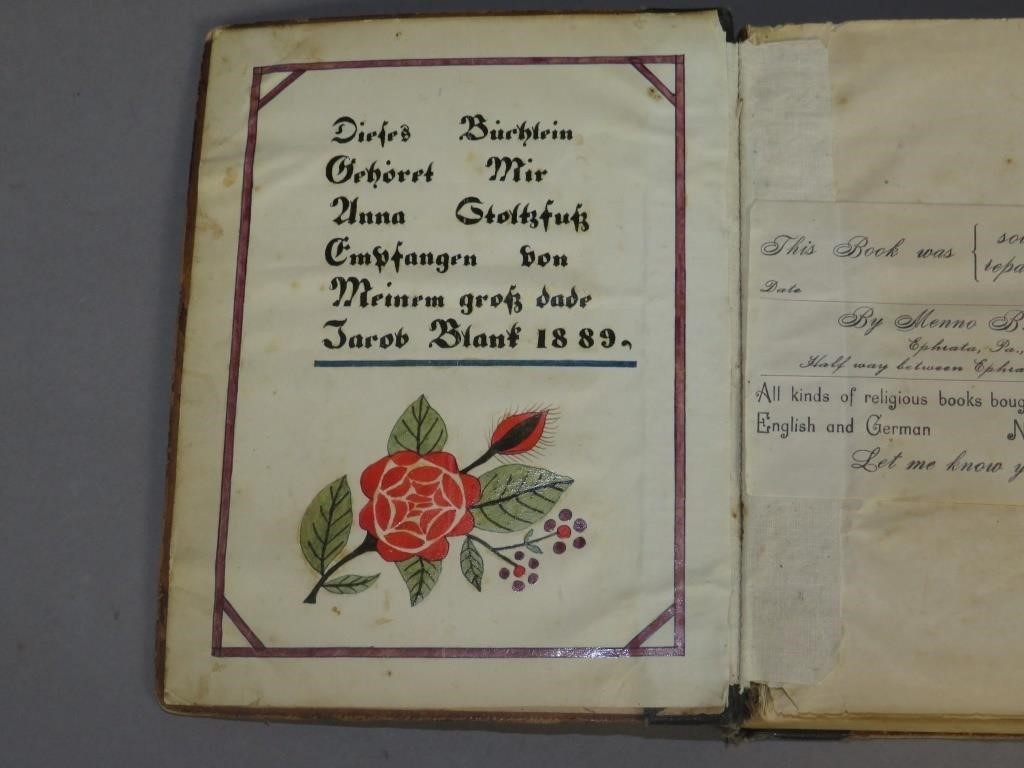 Dieses Büchlein
Gehöret Mir
Anna Stoltzfuß
Empfangen von
Meinem groß dade
Jacob Blank 1889.
This Book was {
Date
By Menno
Ephrata, Pa.,
Half way between
All kinds of religious books
English and German
Let me know